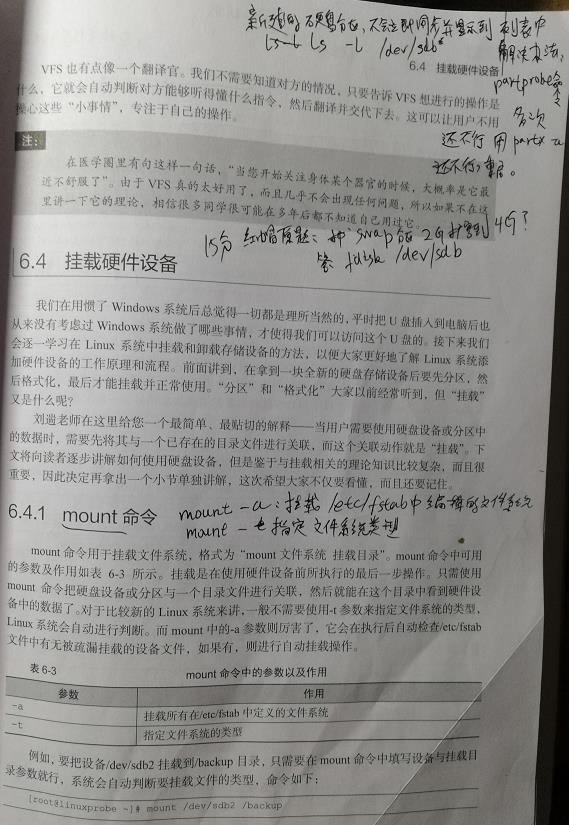 新建的硬盘分区，不会立即同步并显示到 列表中
ls -l /dev/sdb*
解决办法：
partprobe命令
多次
还不行 用 partx -a
还不行，重启。
6.4 挂载硬件设备
VFS 也有点像一个翻译官。我们不需要知道对方的情况，只要告诉 VFS 想进行的操作是
什么，它就会自动判断对方能够听得懂什么指令，然后翻译并交代下去。这可以让用户不用
操心这些“小事情”，专注于自己的操作。
注：
在医学圈里有句这样一句话，“当您开始关注身体某个器官的时候，大概率是它最
近不舒服了”。由于 VFS 真的太好用了，而且几乎不会出现任何问题，所以如果不在这
里讲一下它的理论，相信很多同学很可能在多年后都不知道自己用过它。
15分 红帽原题：把 swap 分区 2G 扩容到 4G？
答 fdisk /dev/sdb
6.4 挂载硬件设备
我们在用惯了 Windows 系统后总觉得一切都是理所当然的，平时把 U 盘插入到电脑后也
从来没有考虑过 Windows 系统做了哪些事情，才使得我们可以访问这个 U 盘的。接下来我们
会逐一学习在 Linux 系统中挂载和卸载存储设备的方法，以便大家更好地了解 Linux 系统添
加硬件设备的工作原理和流程。前面讲到，在拿到一块全新的硬盘存储设备后要先分区，然
后格式化，最后才能挂载并正常使用。“分区”和“格式化”大家以前经常听到，但“挂载”
又是什么呢？
刘遄老师在这里给您一个最简单、最贴切的解释——当用户需要使用硬盘设备或分区中
的数据时，需要先将其与一个已存在的目录文件进行关联，而这个关联动作就是“挂载”。下
文将向读者逐步讲解如何使用硬盘设备，但是鉴于与挂载相关的理论知识比较复杂，而且很
重要，因此决定再拿出一个小节单独讲解，这次希望大家不仅要看懂，而且还要记住。
6.4.1 mount 命令
mount -a：挂载 /etc/fstab中编辑的文件系统
mount -t 指定文件系统类型
mount 命令用于挂载文件系统，格式为“mount 文件系统 挂载目录”。mount 命令中可用
的参数及作用如表 6-3 所示。挂载是在使用硬件设备前所执行的最后一步操作。只需使用
mount 命令把硬盘设备或分区与一个目录文件进行关联，然后就能在这个目录中看到硬件设
备中的数据了。对于比较新的 Linux 系统来讲，一般不需要使用-t 参数来指定文件系统的类型，
Linux 系统会自动进行判断。而 mount 中的-a 参数则厉害了，它会在执行后自动检查/etc/fstab
文件中有无被疏漏挂载的设备文件，如果有，则进行自动挂载操作。
表 6-3 mount 命令中的参数以及作用
参数 作用
-a 挂载所有在/etc/fstab 中定义的文件系统
-t 指定文件系统的类型
例如，要把设备/dev/sdb2 挂载到/backup 目录，只需要在 mount 命令中填写设备与挂载目
录参数就行，系统会自动判断要挂载文件的类型，命令如下：
[root@linuxprobe ~]# mount /dev/sdb2 /backup